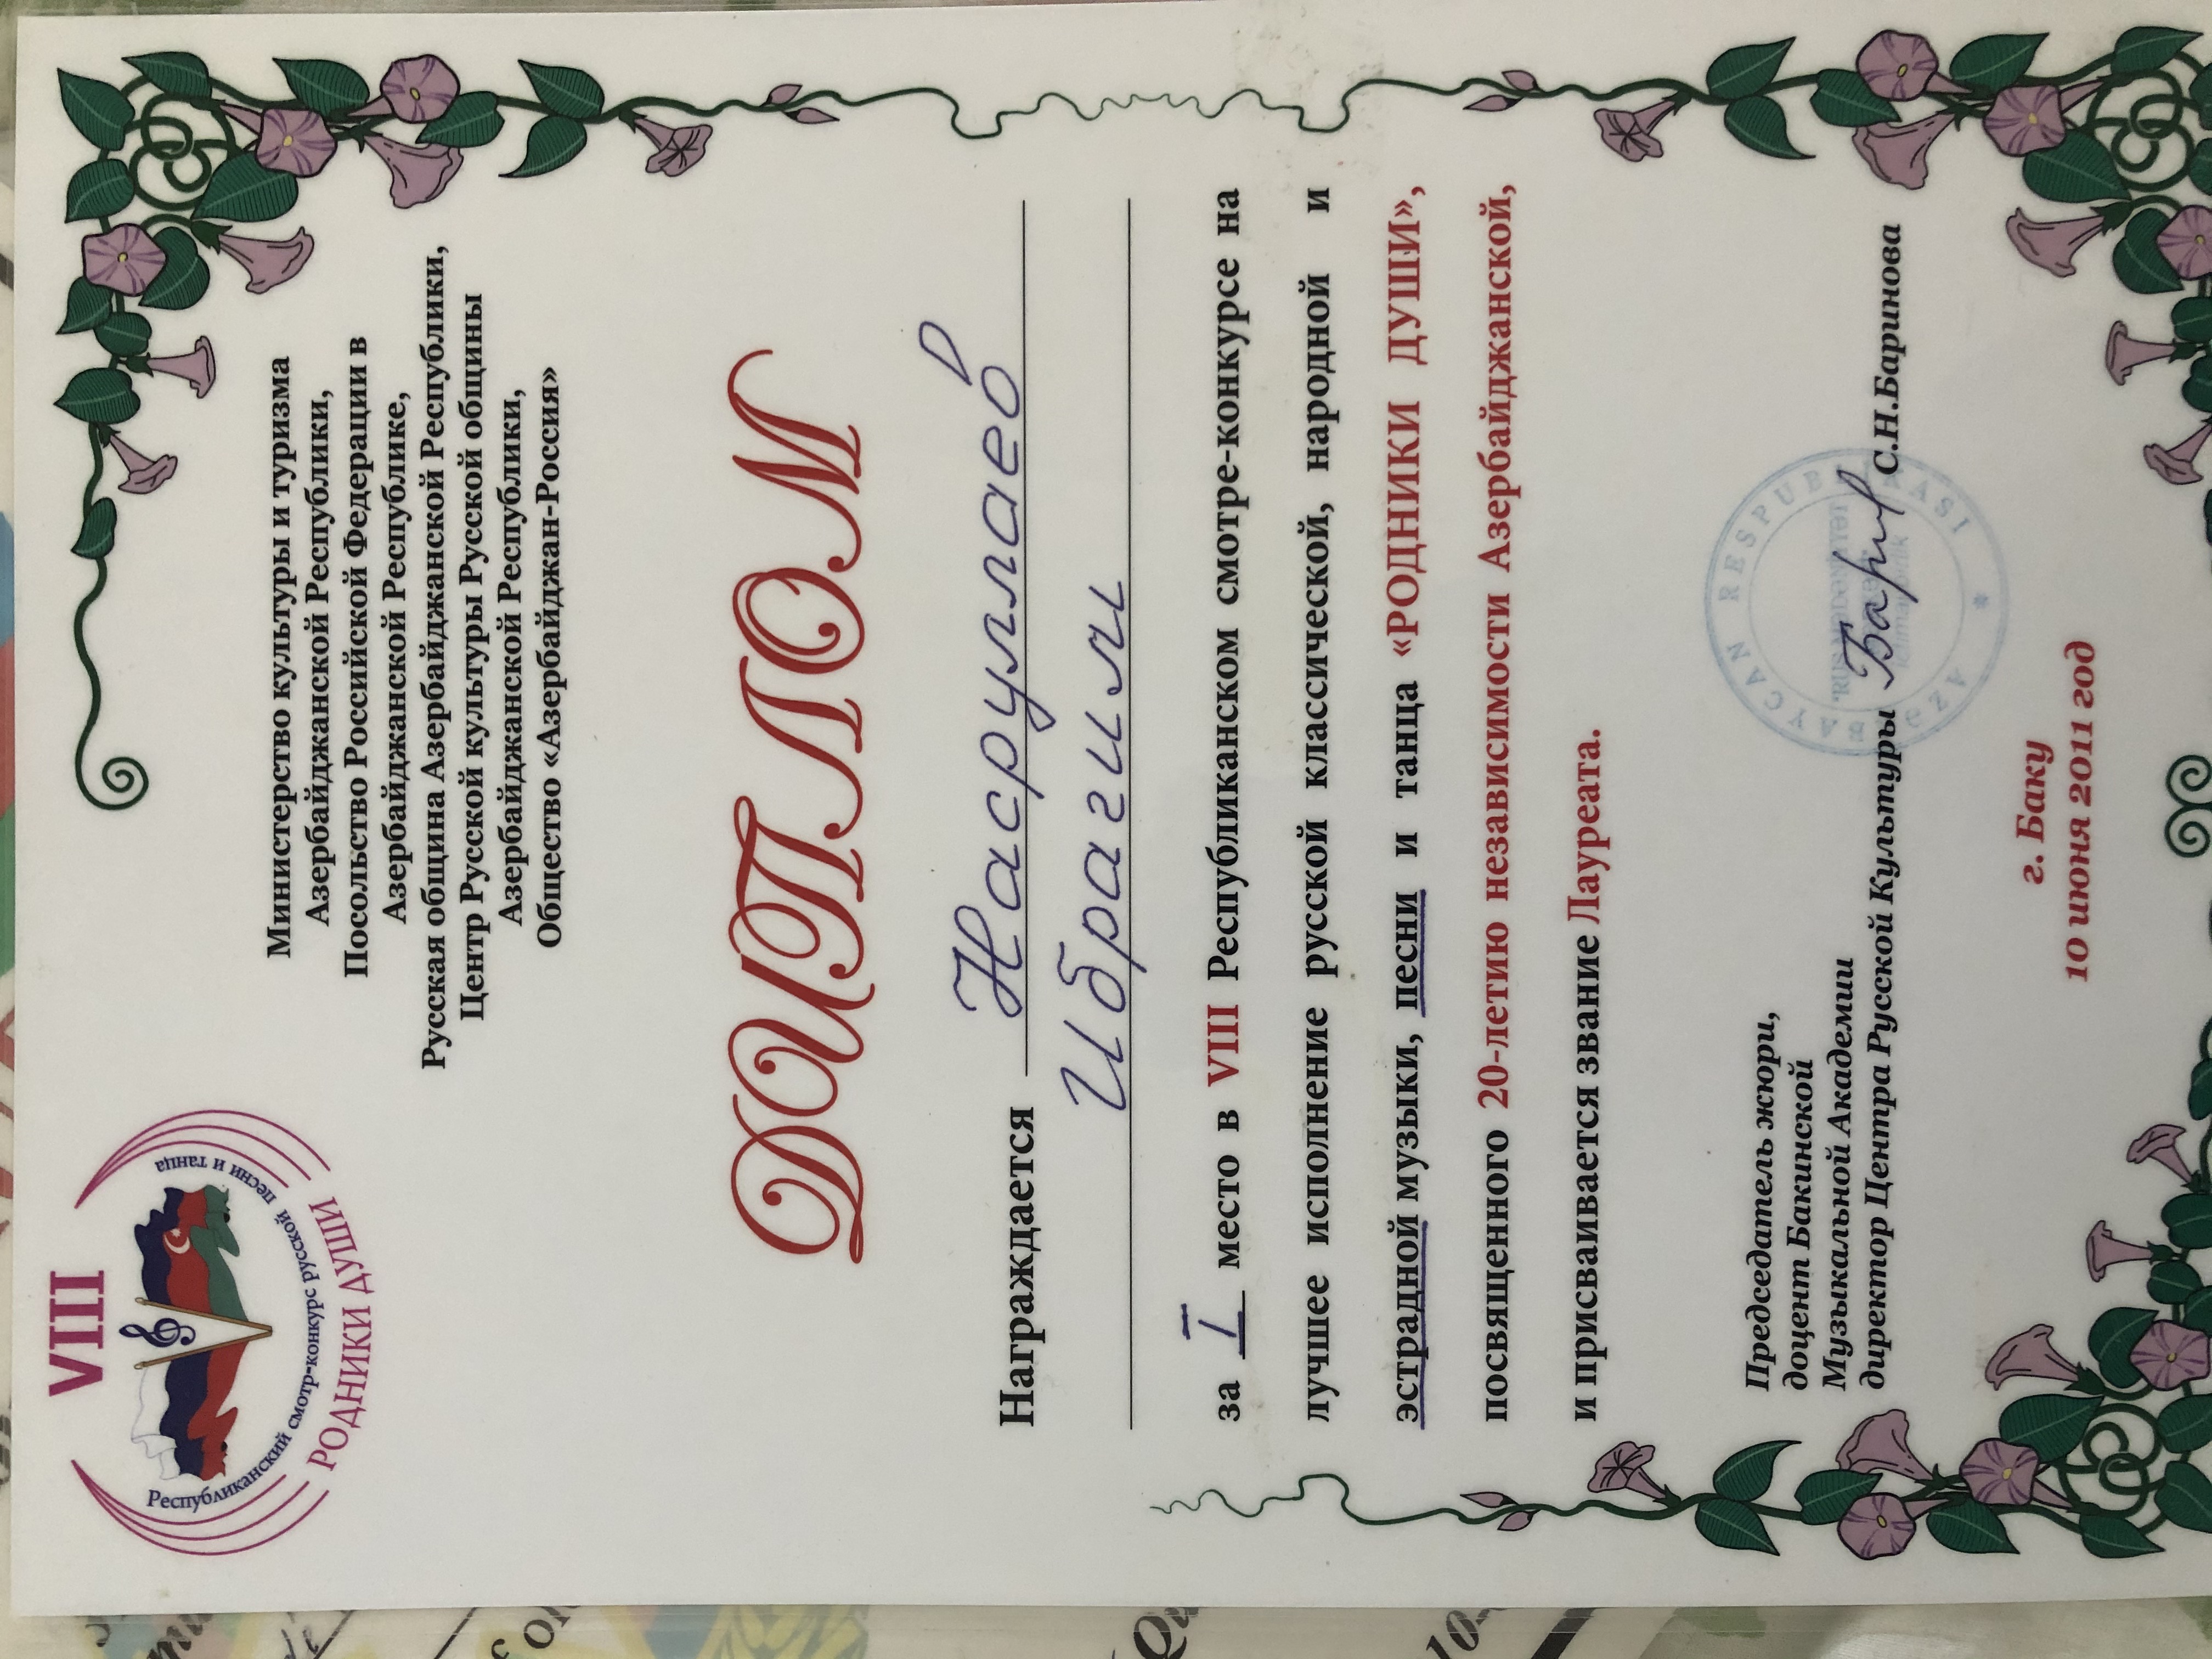 VIII
Республиканский смотр-конкурс русской песни и танца
РОДНИКИ ДУШИ
Министерство культуры и туризма
Азербайджанской Республики,
Посольство Российской Федерации в
Азербайджанской Республике,
Русская община Азербайджанской Республики,
Центр Русской культуры Русской общины
Азербайджанской Республики,
Общество «Азербайджан-Россия»
ДИПЛОМ
Награждается Насруллаев
Ибрагим
за I место в VIII Республиканском смотре-конкурсе на
лучшее исполнение русской классической, народной и
эстрадной музыки, песни и танца «РОДНИКИ ДУШИ»,
посвященного 20-летию независимости Азербайджанской,
и присваивается звание Лауреата.
Председатель жюри,
доцент Бакинской
Музыкальной Академии
директор Центра Русской Культуры С.Н.Баринова
AZƏRBAYCAN RESPUBLIKASI
RUS MƏDƏNİYYƏT
г. Баку
10 июня 2011 год